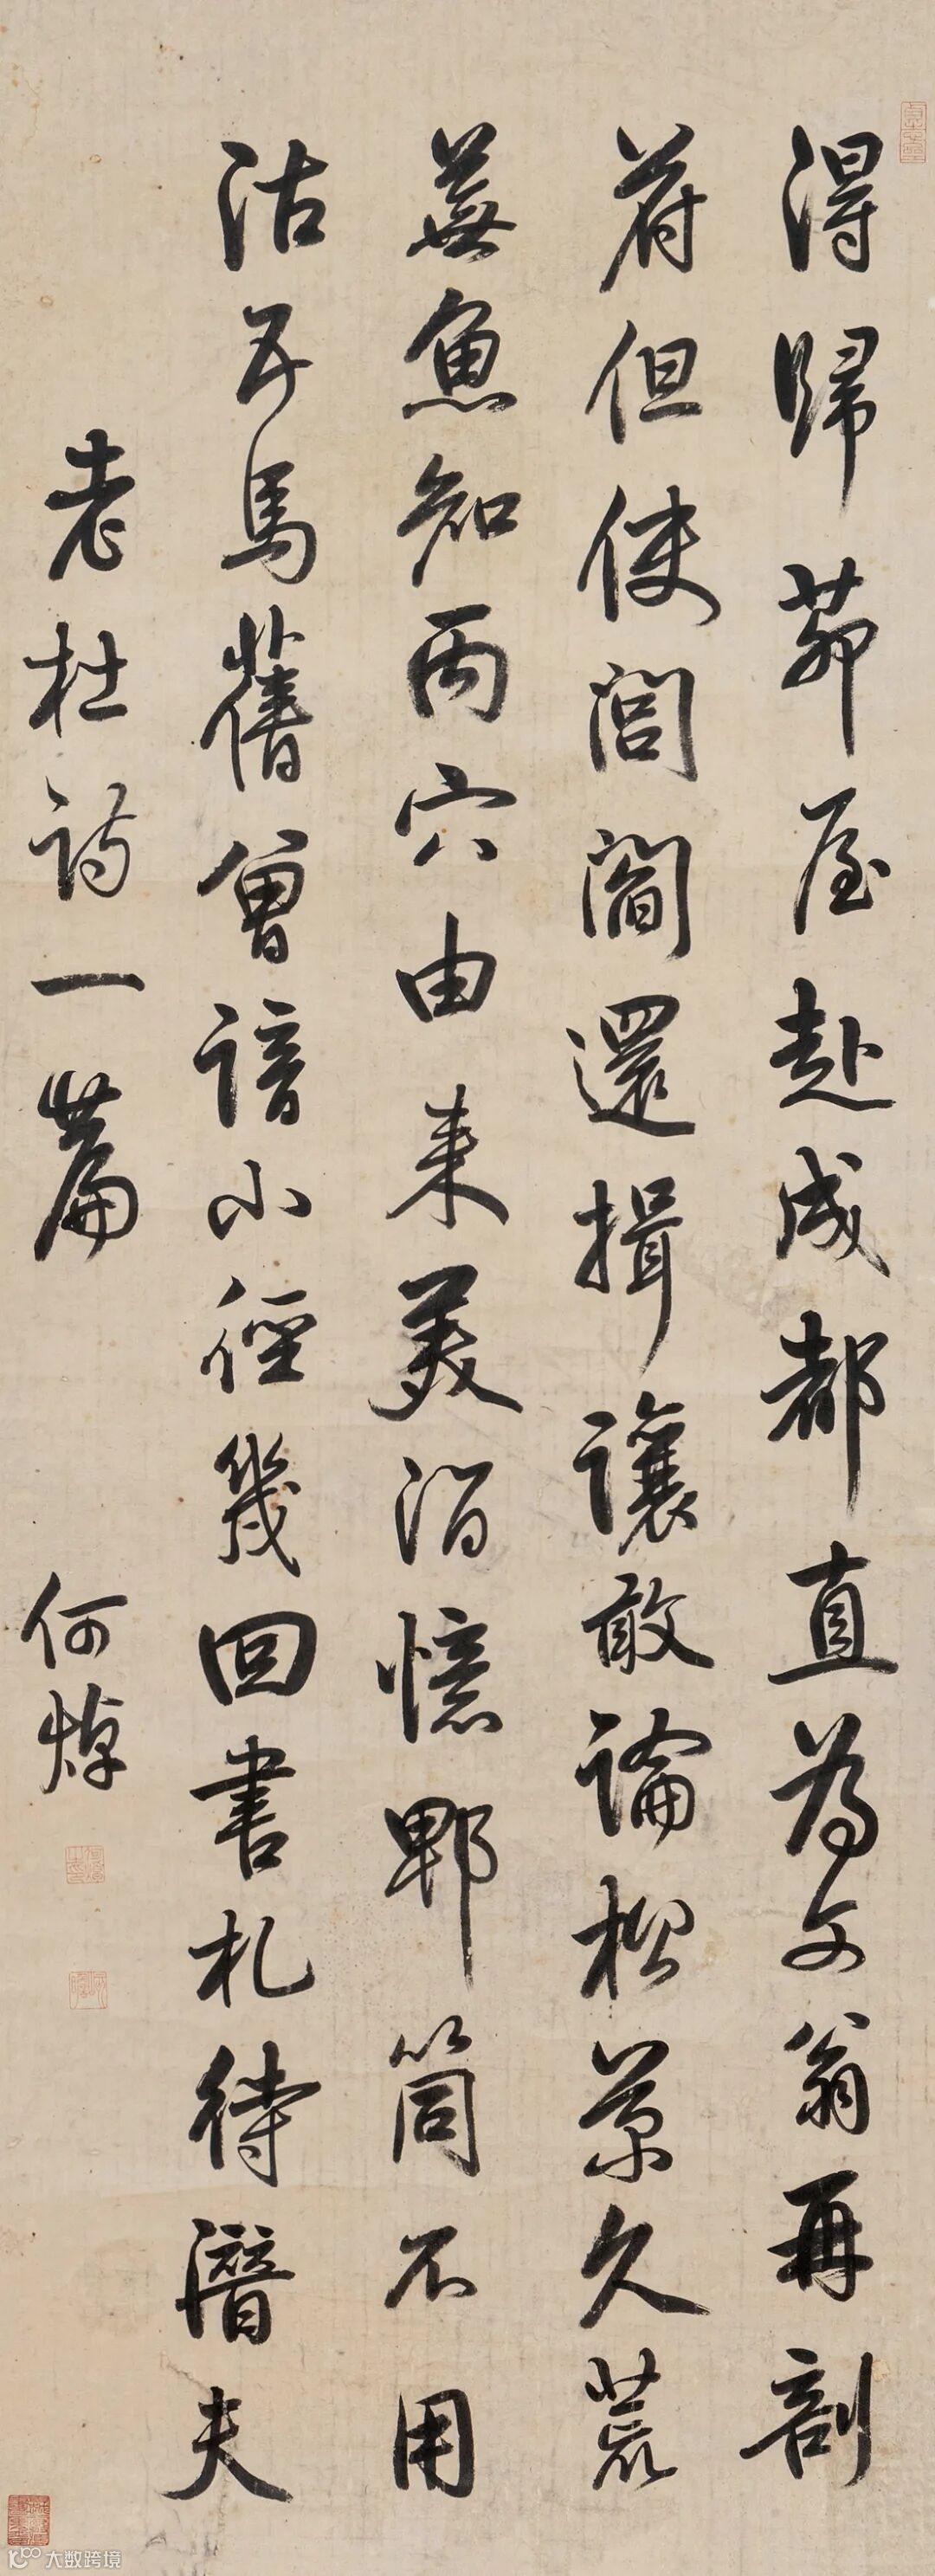 得歸茆屋赴成都直為文翁再剖
符但使閭閻還揖讓敢論松菊久荒
蕪魚知丙穴由来美酒憶郫筒不用
沽五馬舊曾諳小徑幾回書札待潛夫
老杜詩一篇
何焯
大数跨境